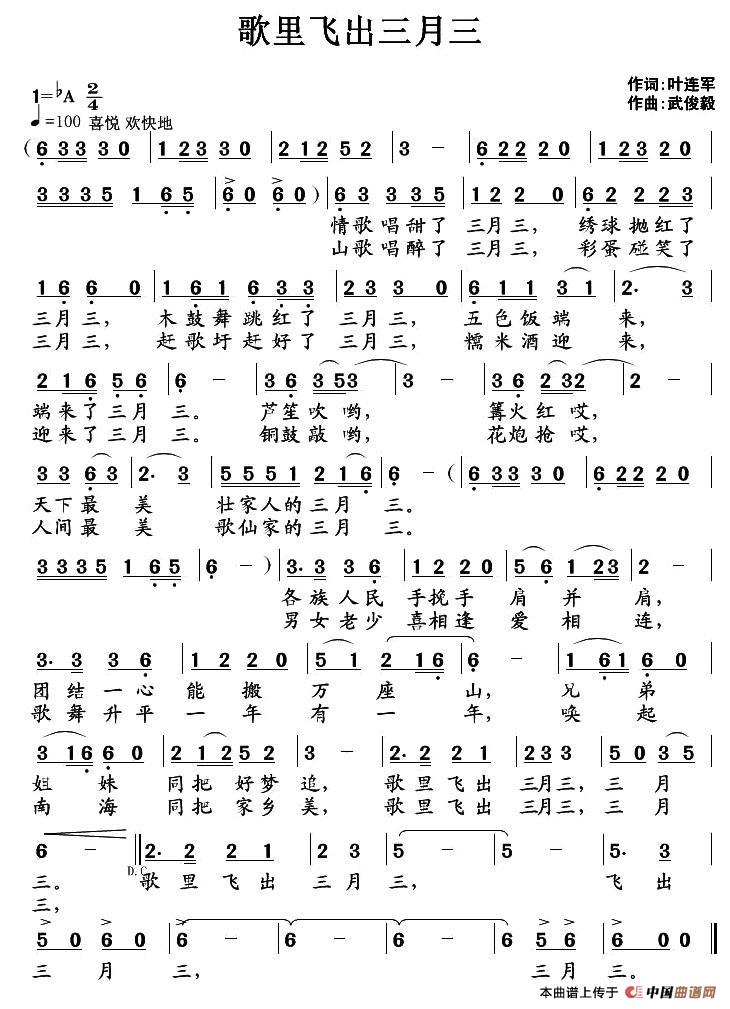 歌里飞出三月三
1=♭A 2/4
作词:叶连军
作曲:武俊毅
♩=100 喜悦 欢快地
(6 3 3 3 3 0 | 1 2 3 3 0 | 2 1 2 5 2 | 3 － | 6 2 2 2 0 | 1 2 3 2 0 |
3 3 3 5 1 6 5 | 6 0 6 0 ) | 6 3 3 3 5 | 1 2 2 0 | 6 2 2 2 3 |
情歌唱甜了 三月三, 绣球抛红了
山歌唱醉了 三月三, 彩蛋碰笑了
1 6 6 0 | 1 6 1 6 3 3 | 2 3 3 0 | 6 1 3 1 | 2· 3 |
三月三, 木鼓舞跳红了 三月三, 五色饭端 来,
三月三, 赶歌圩赶好了 三月三, 糯米酒迎 来,
2 1 6 5 6 | 6 － | 3 6 3 5 3 | 3 － | 3 6 2 3 2 | 2 － |
端来了三月 三。 芦笙吹 哟, 篝火红 哎,
迎来了三月 三。 铜鼓敲 哟, 花炮抢 哎,
3 3 6 3 | 2· 3 | 5 5 5 1 2 1 6 | 6 － ( | 6 3 3 3 3 0 | 6 2 2 2 0 |
天下最 美 壮家人的三月 三。
人间最 美 歌仙家的三月 三。
3 3 3 5 1 6 5 | 6 － ) | 3· 3 3 6 | 1 1 2 2 0 | 5 6 1 2 3 | 2 － |
各族人民 手挽手 肩 并 肩,
男女老少 喜相逢 爱 相 连,
3· 3 3 6 | 1 2 2 0 | 5 1 2 1 6 | 6 － | 1 6 1 6 0 |
团结一心 能搬 万 座 山, 兄 弟
歌舞升平 一年 有 一 年, 唤 起
3 1 6 6 0 | 2 1 2 5 2 | 3 － | 2· 2 2 1 | 2 3 3 | 5 0 3 5 |
姐 妹 同把 好梦 追, 歌里飞出 三月三, 三 月
南 海 同把 家乡 美, 歌里飞出 三月三, 三 月
6 － ‖ 2· 2 2 1 | 2 3 | 5 － | 5 － | 5· 3 |
D.C
三。 歌 里 飞 出 三 月 三, 飞 出
三,
5 0 6 0 | 6 － | 6 － | 6 － | 5 0 6 0 | 6 0 0 ‖
三 月 三, 三 月 三。
本曲谱上传于 中国曲谱网